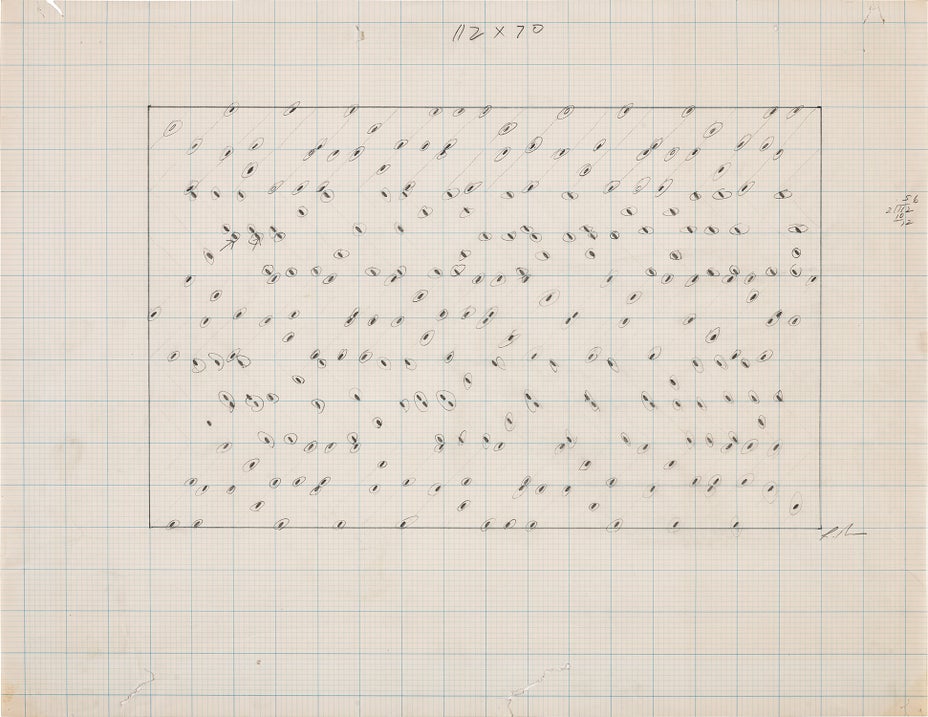 112 x 70
56
2 112
10
12